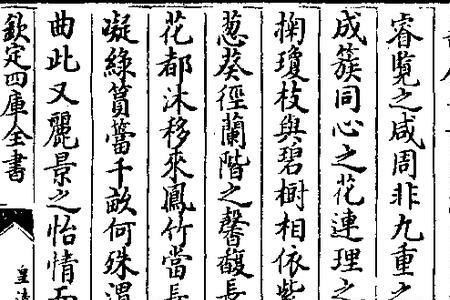 睿覽之咸周非九重之
成簇同心之花連理之
掬瓊枝與碧樹相依紫
葱葵徑蘭階之馨馥長
花都沐移來鳳竹當長
凝綠篔簹千畝何殊渭
曲此又麗景之怡情
欽定四庫全書
皇清